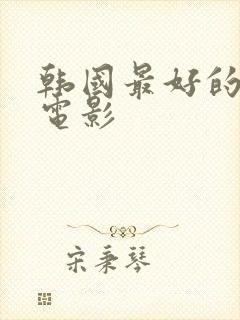 韩國最好的
電影
宋秉琴